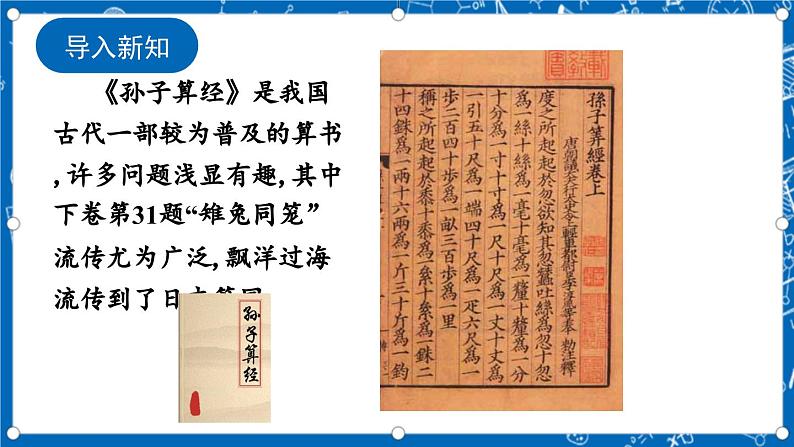 导入新知
《孙子算经》是我国
古代一部较为普及的算书
,许多问题浅显有趣,其中
下卷第31题“雉兔同笼”
流传尤为广泛,飘洋过海
流传到了日本等国
孙子算经
孫子算經卷上
唐朝議大夫行太史令上輕車都尉臣李淳風等奉 勅注釋
度之所起起於忽欲知其忽蠶吐絲爲忽十忽
爲一絲十絲爲一毫十毫爲一釐十釐爲一分
十分爲一寸十寸爲一尺十尺爲一丈十丈爲
一引五十尺爲一端四十尺爲一疋六尺爲一
步二百四十步爲一畝三百步爲一里
稱之所起起於黍十黍爲一絫十絫爲一銖二
十四銖爲一兩十六兩爲一斤三十斤爲一鈞